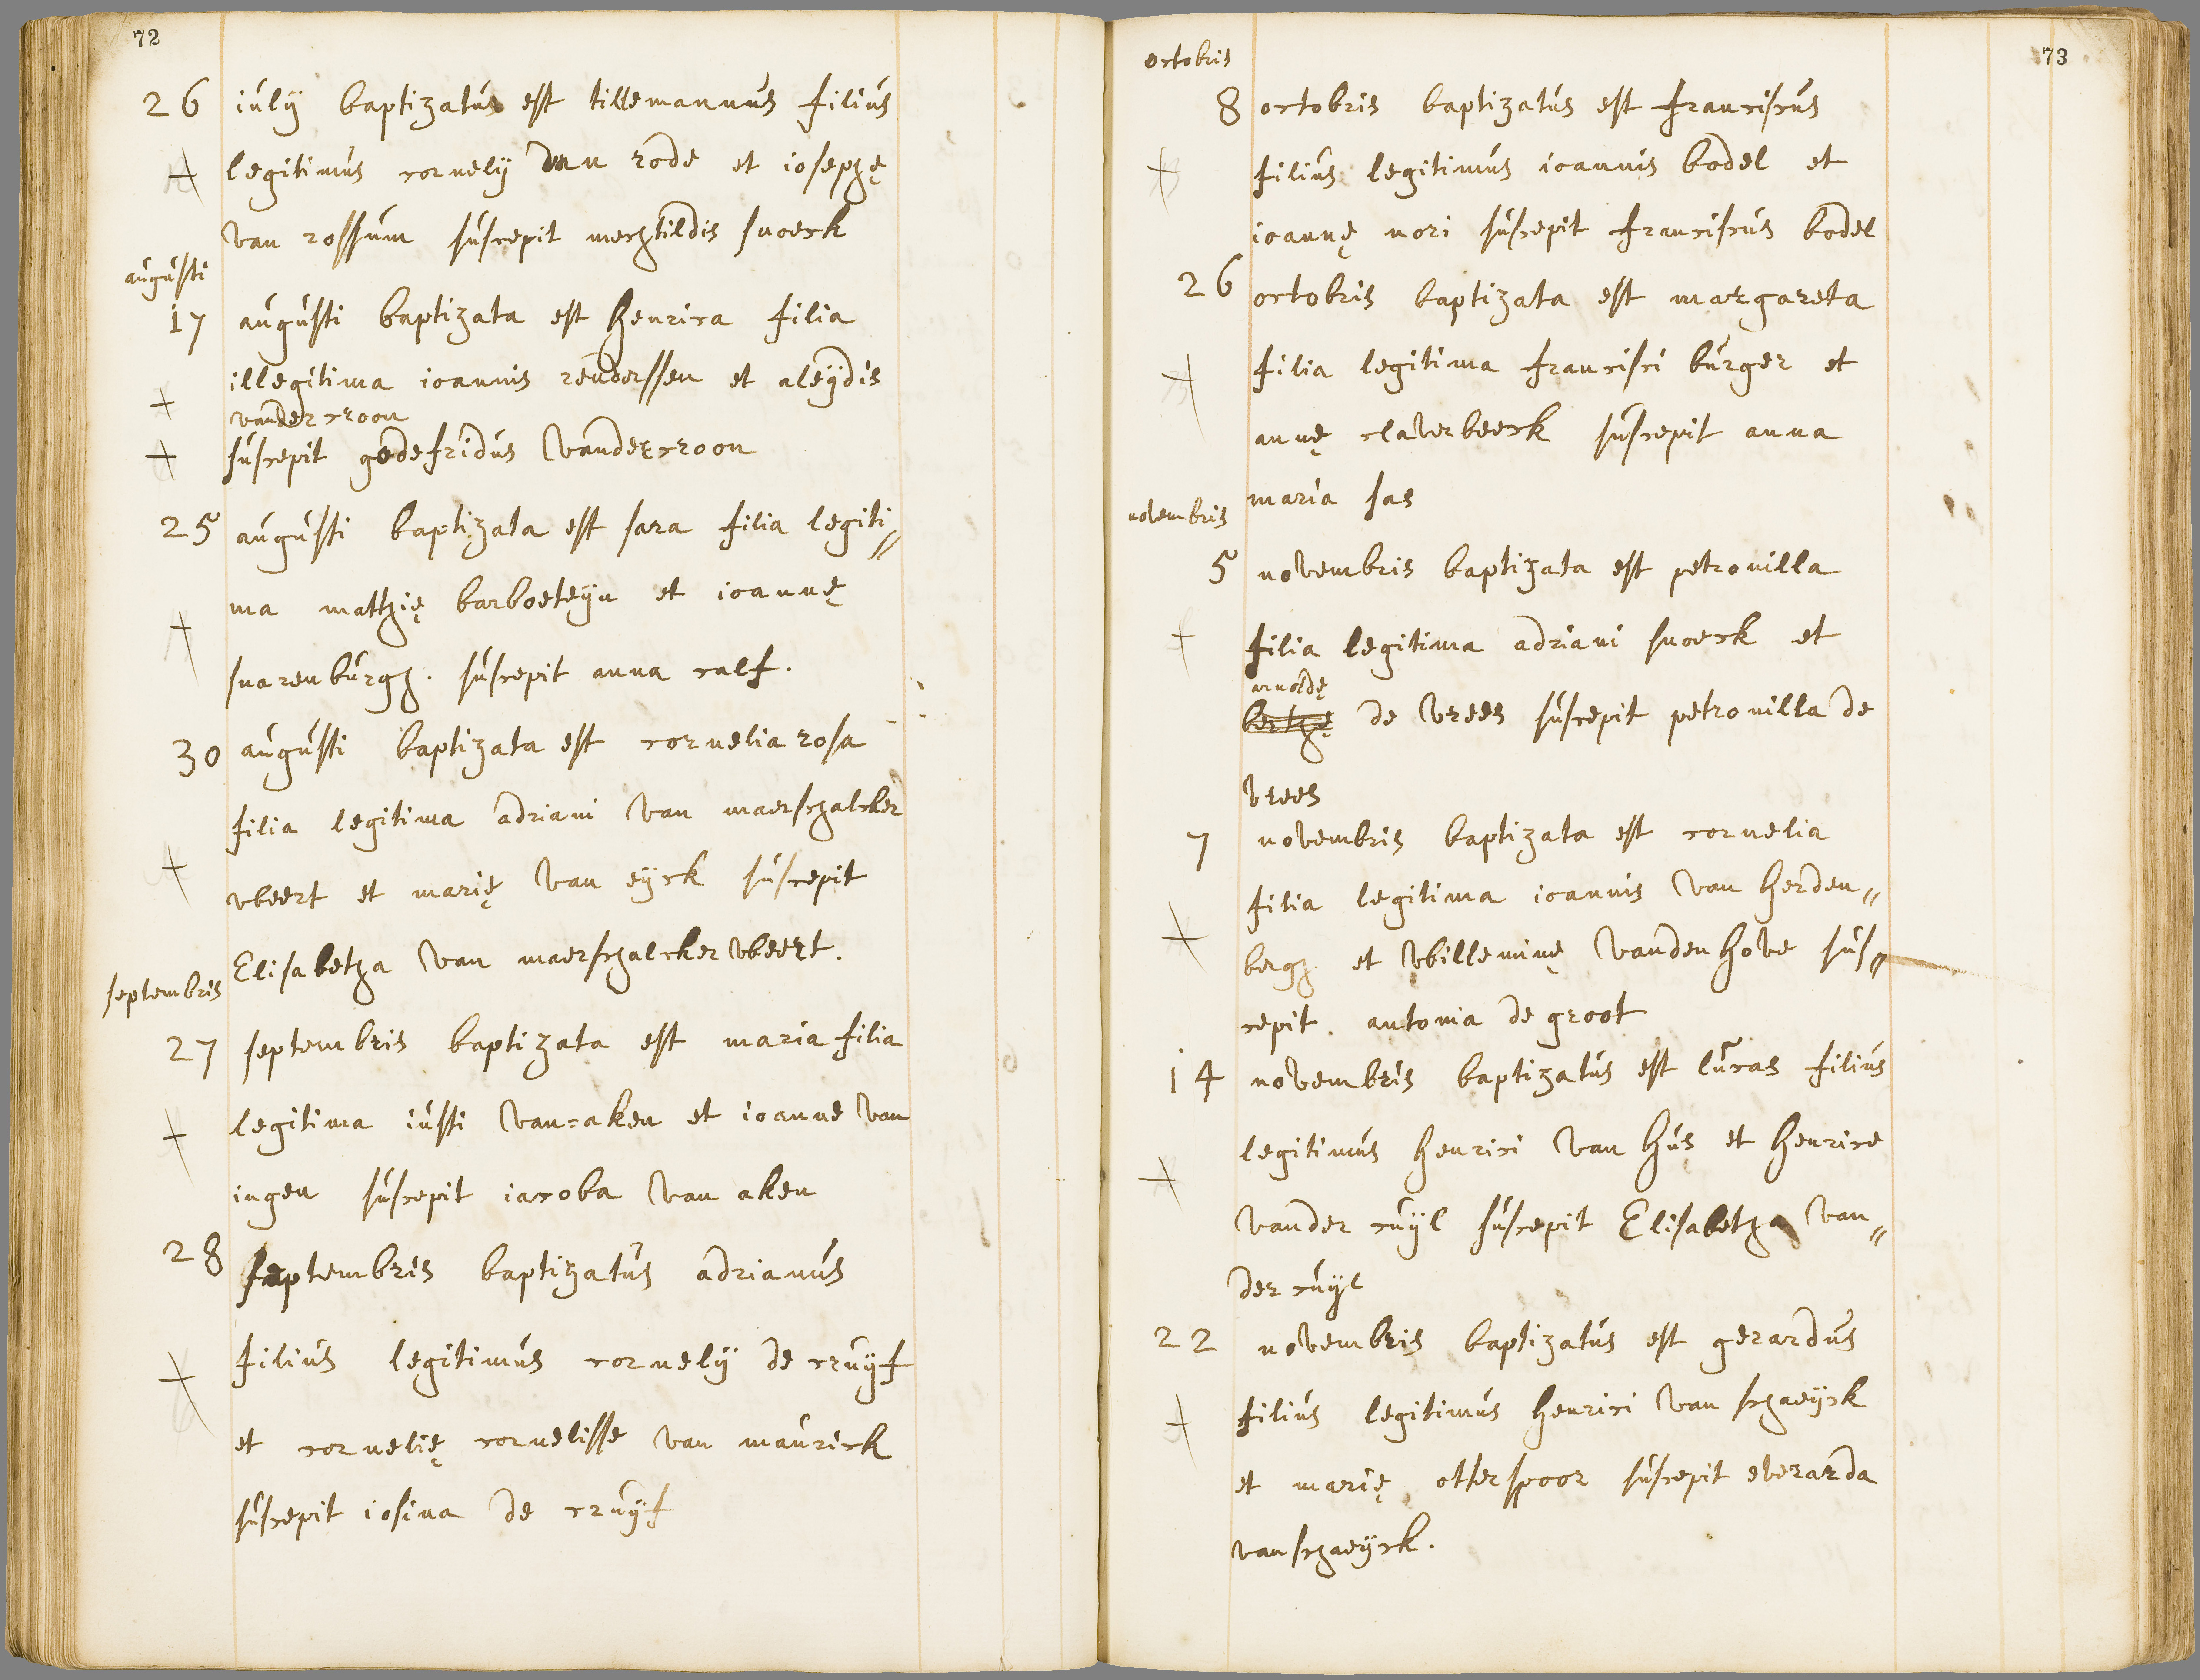 72
26 iulij baptizatus est tillemannus filius
legitimus cornelij van rode et iosephę
van rossum suscepit mechtildis snoeck
augusti
17 augusti baptizata est henrica filia
illegitima ioannis renderssen et aleydis
vander croon
suscepit godefridus vander croon
25 augusti baptizata est sara filia legiti〃
ma mathię barboeteyn et ioannę
suarenburgh. suscepit anna calf.
30 augusti baptizata est cornelia rosa
filia legitima adriani van maerschalcker
wbeert et marię van eyck suscepit
Elisabetha van maerschalcker wbeert.
septembris
27 septembris baptizata est maria filia
legitima iusti van=aken et ioanne van
ingen suscepit iacoba van aken
28 septembris baptizatus adrianus
filius legitimus cornelij de cruyf
et cornelię cornelisse van maurick
suscepit iosina de cruyf
73
octobris
8 octobris baptizatus est franciscus
filius legitimus ioannis bodel et
ioannę nori suscepit franciscus bodel
26 octobris baptizata est margareta
filia legitima francisci burger et
annę claverbeeck suscepit anna
maria sas
novembris
5 novembris baptizata est petronilla
filia legitima adriani snoeck et
arnoldę
berthę de vrees suscepit petronilla de
vrees
7 novembris baptizata est cornelia
filia legitima ioannis van herden〃
bergh et wbilleminę vanden hove sus〃
cepit. antonia de groot
14 novembris baptizatus est lucas filius
legitimus henrici van hus et henrice
vander cuyl suscepit Elisabetha van〃
der cuyl
22 novembris baptizatus est gerardus
filius legitimus henrici van schaeyck
et marię otterspoor suscepit everarda
van schaeyck.